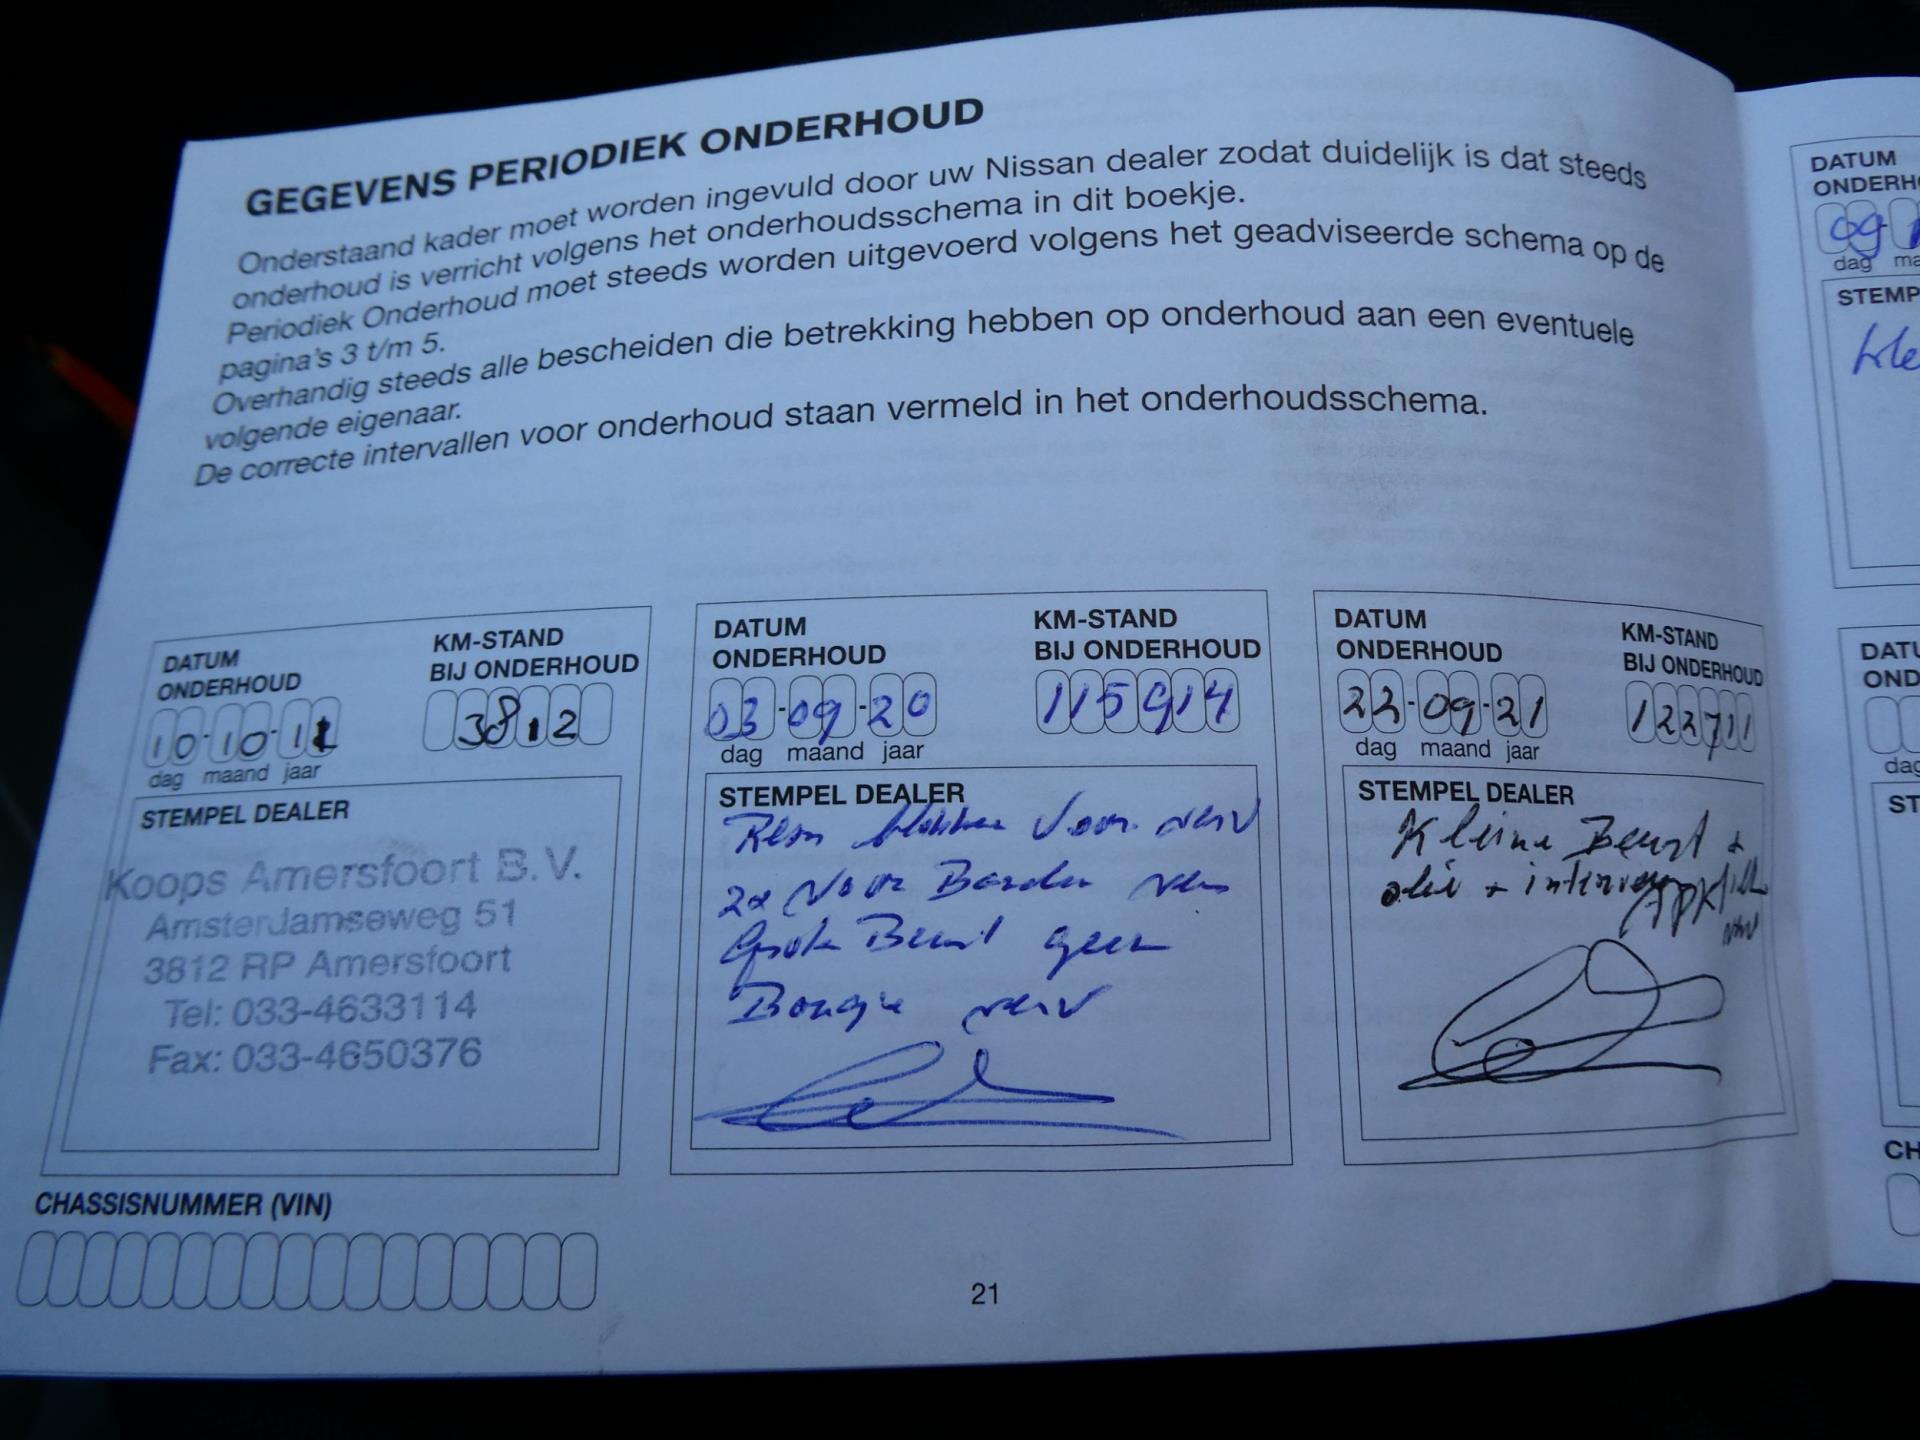 GEGEVENS PERIODIEK ONDERHOUD
Onderstaand kader moet worden ingevuld door uw Nissan dealer zodat duidelijk is dat steeds
onderhoud is verricht volgens het onderhoudsschema in dit boekje.
Periodiek Onderhoud moet steeds worden uitgevoerd volgens het geadviseerde schema op de
pagina's 3 t/m 5.
Overhandig steeds alle bescheiden die betrekking hebben op onderhoud aan een eventuele
volgende eigenaar.
De correcte intervallen voor onderhoud staan vermeld in het onderhoudsschema.
DATUM
ONDERHOUD
KM-STAND
BIJ ONDERHOUD
10-10-11
3812
dag maand jaar
STEMPEL DEALER
Koops Amersfoort B.V.
Amsterdamseweg 51
3812 RP Amersfoort
Tel: 033-4633114
Fax: 033-4650376
CHASSISNUMMER (VIN)
DATUM
ONDERHOUD
KM-STAND
BIJ ONDERHOUD
03-09-20
115914
dag maand jaar
STEMPEL DEALER
Rem blokken Voor
2x Voor Banden
Grote Beurt geen
Bougie
DATUM
ONDERHOUD
KM-STAND
BIJ ONDERHOUD
22-09-21
122711
dag maand jaar
STEMPEL DEALER
Kleine Beurt +
olie +
APK
21
DATUM
09
dag